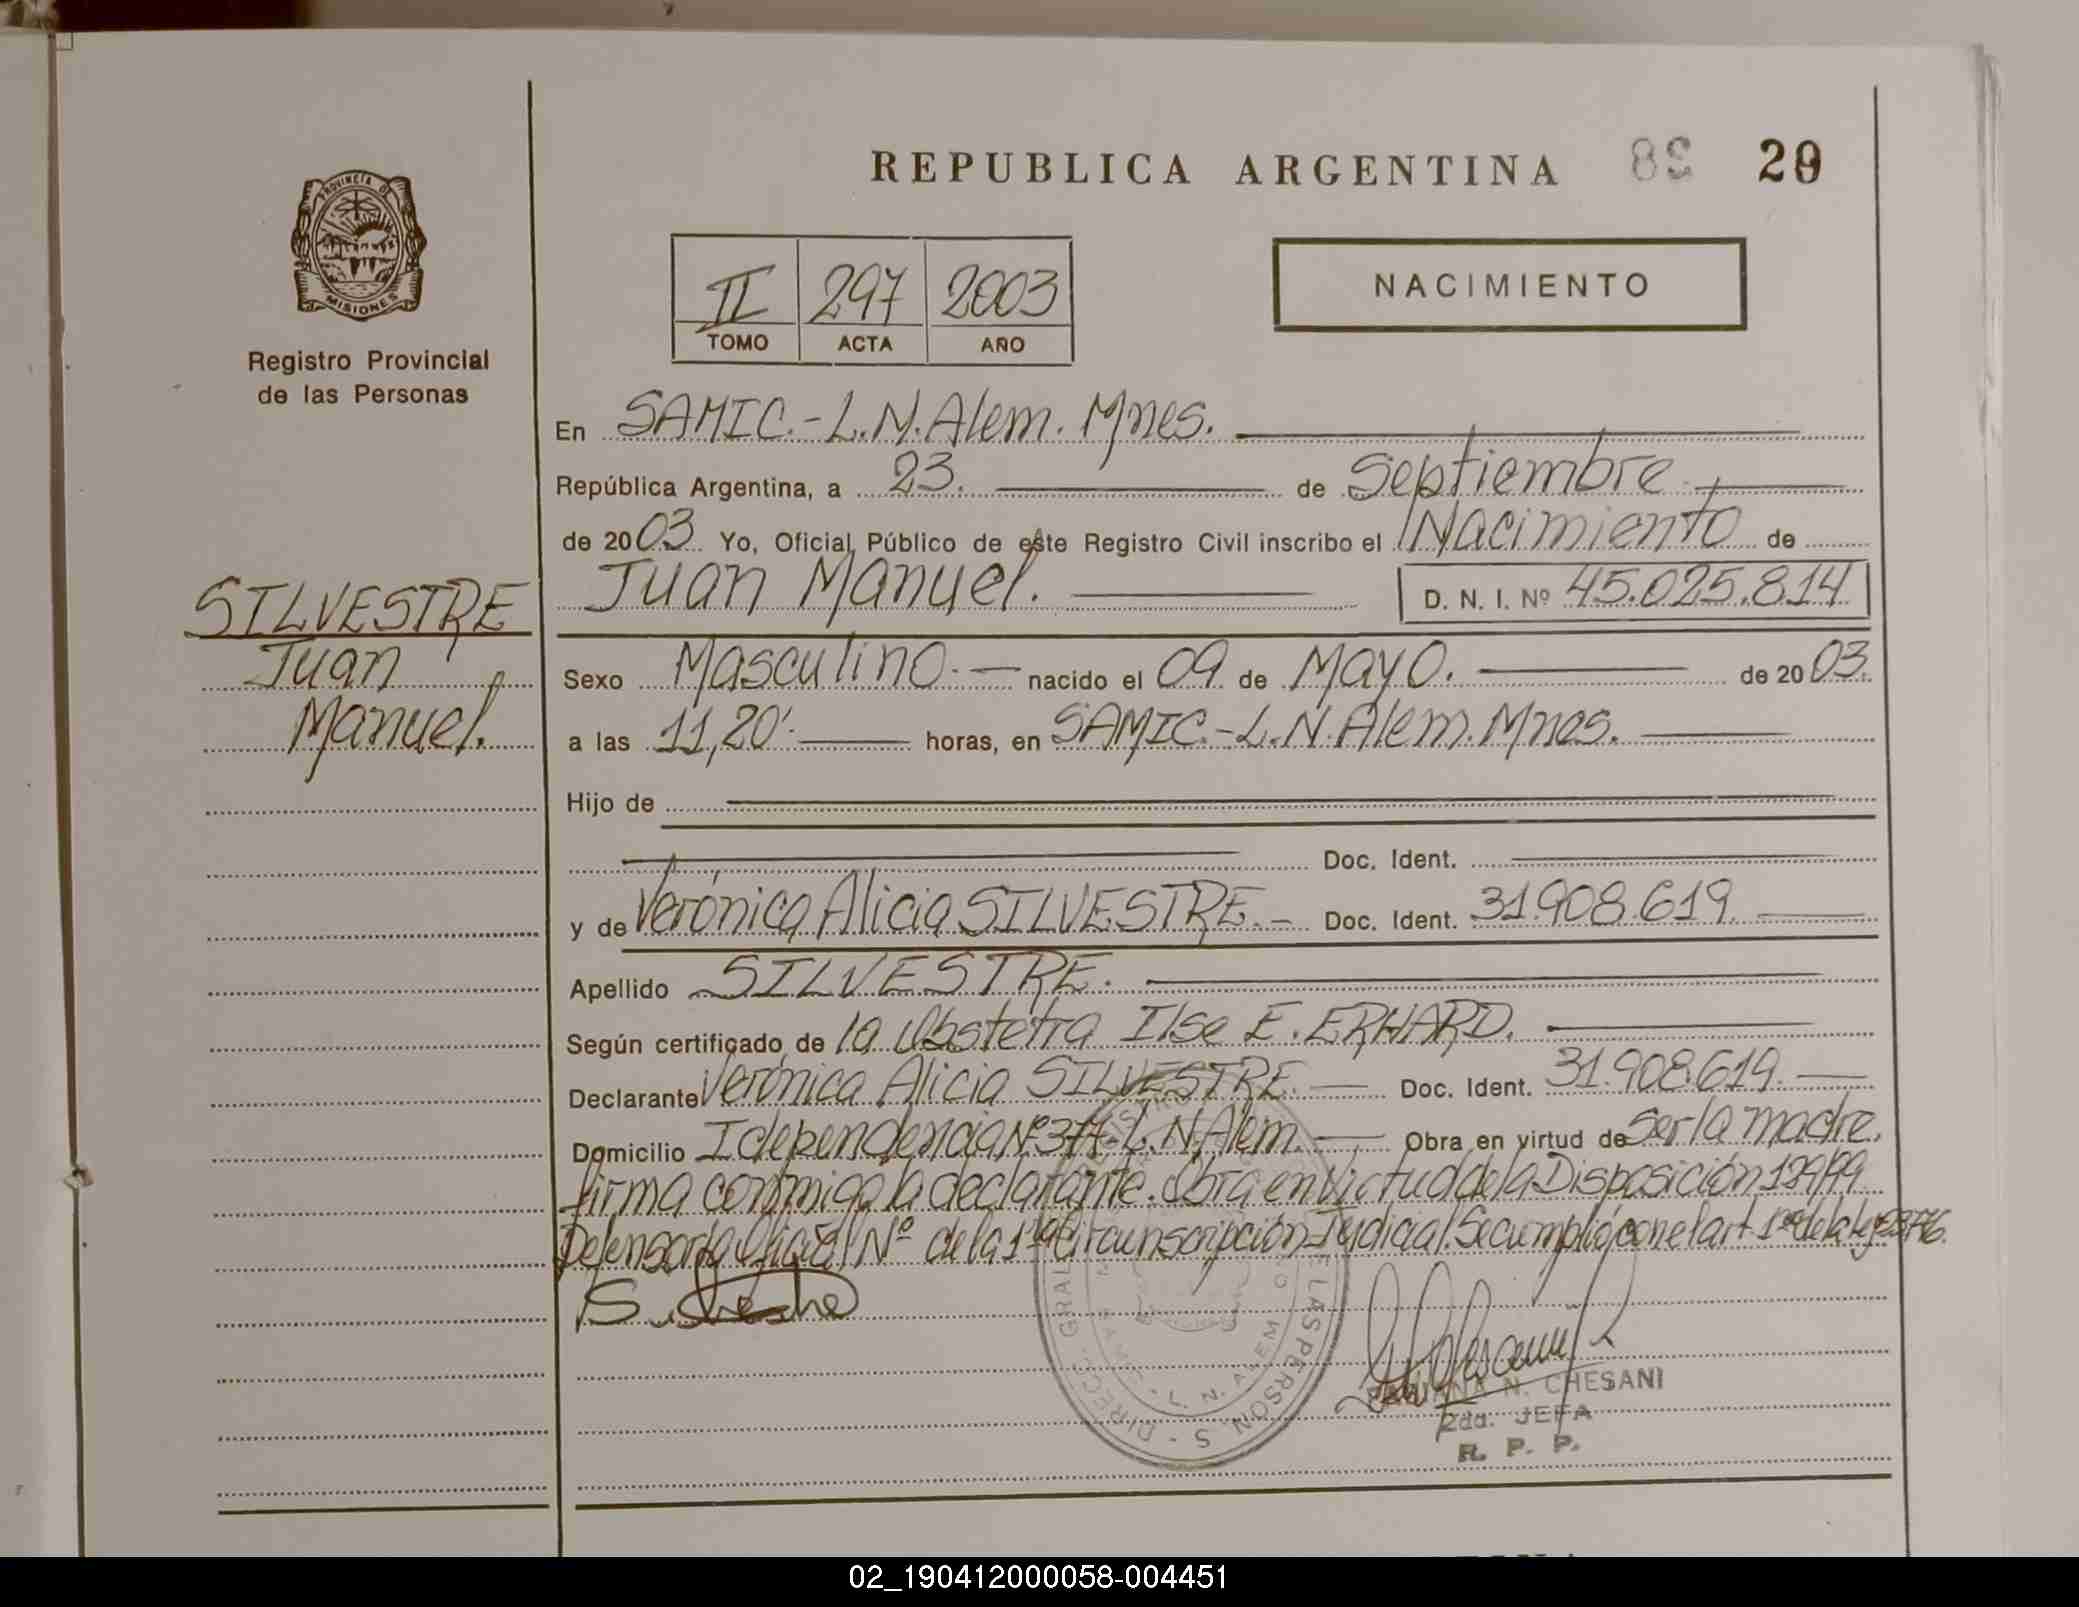 REPUBLICA ARGENTINA 20
PROVINCIA D
MISIONES
Registro Provincial
de las Personas
II 297 2003
TOMO ACTA AÑO
NACIMIENTO
En SAMIC.-L.N.Alem. Mnes.
República Argentina, a 23. de Septiembre
de 2003 Yo, Oficial Público de este Registro Civil inscribo el Nacimiento de
Juan Manuel. D. N. I. Nº 45.025.814
SILVESTRE
Juan
Manuel.
Sexo Masculino.- nacido el 09 de Mayo. de 2003.
a las 11,20'. horas, en SAMIC.-L.N.Alem.Mnes.
Hijo de
Doc. Ident.
y de Verónica Alicia SILVESTRE.- Doc. Ident. 31.908.619.
Apellido SILVESTRE.
Según certificado de la Obstétra Ilse E. ERHARD.
Declarante Verónica Alicia SILVESTRE.- Doc. Ident. 31.908.619.
Domicilio Idependencia Nº L.N.Alem. Obra en virtud de ser la madre,
firma conmigo la declarante. Obra en Virtud de la Disposición 129/99
Defensoría Oficial Nº de la 1ª Circunscripción Judicial. Se cumplió con el art 1º de la Ley
FABIANA N. CHESANI
2da. JEFA
R. P. P.
02_190412000058-004451